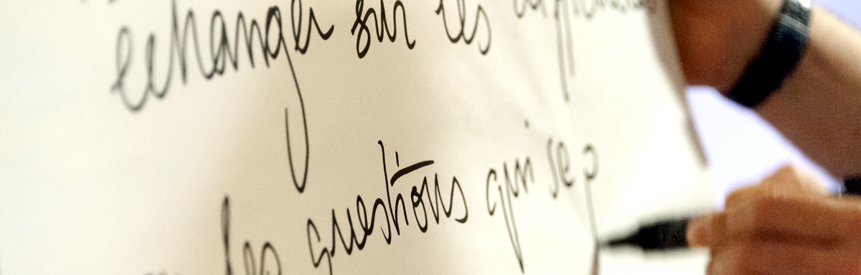 échanger sur les
les questions qui se p